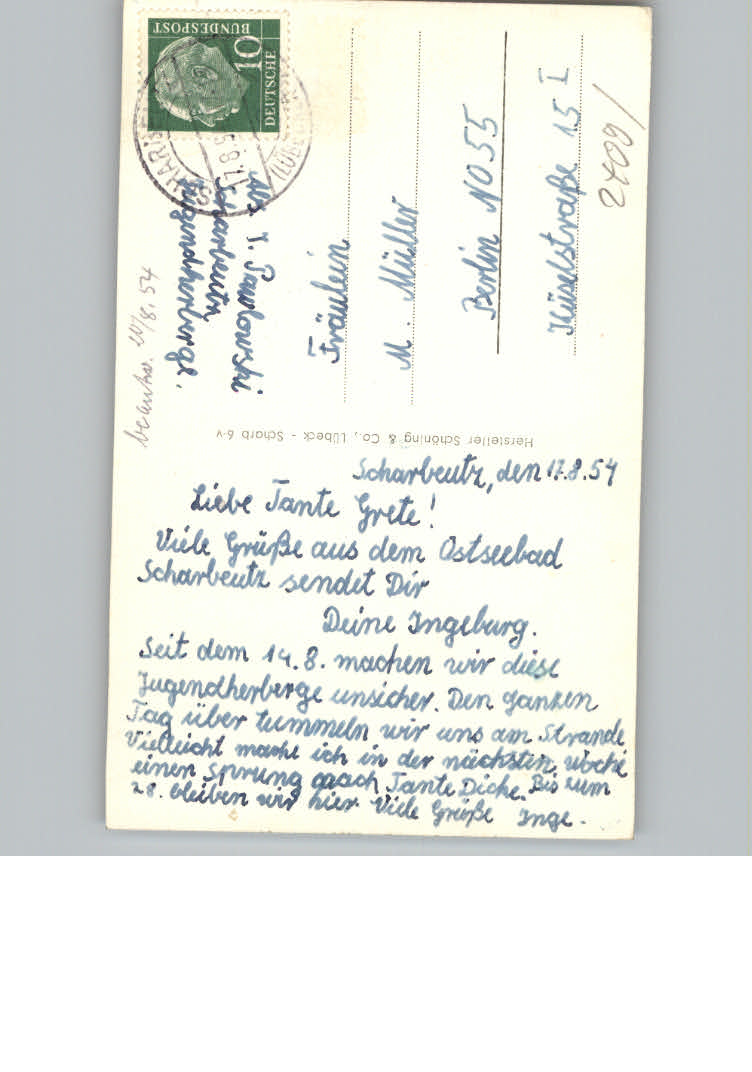 Scharbeutz, den 17.8.54
Liebe Tante Grete!
Viele Grüße aus dem Ostseebad
Scharbeutz sendet Dir
Deine Ingeburg.
Seit dem 14.8. machen wir diese
Jugendherberge unsicher. Den ganzen
Tag über tummeln wir uns am Strande
Vielleicht mache ich in der nächsten Woche
einen Sprung nach Tante Dicke. Bis zum
28. bleiben wir hier Viele Grüße Inge.
Hersteller Schöning & Co., Lübeck - Scharb 6-v
DEUTSCHE
BUNDESPOST
10
17.8.5
(LÜBECK
Abs. I. Pawlowski
Scharbeutz
Jugendherberge.
beantw. 20/8. 54
Fräulein
M. Müller
Berlin NO 55
Hüselstraße 15 I